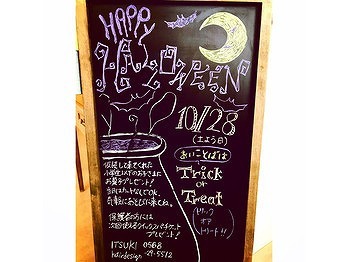 HAPPY
HALLOWEEN
10/28
(土よう日)
あいことばは
Trick
or
Treat
(トリック
オア
トリート!!)
仮装して来てくれた
小学生以下のお子さまに
お菓子プレゼント!
当日はカットなしでOK.
気軽にあそびに来てね。
保護者の方には
次回使えるクイックスパチケット
プレゼント!
ITSUKI 0568
hairdesign -29-5512